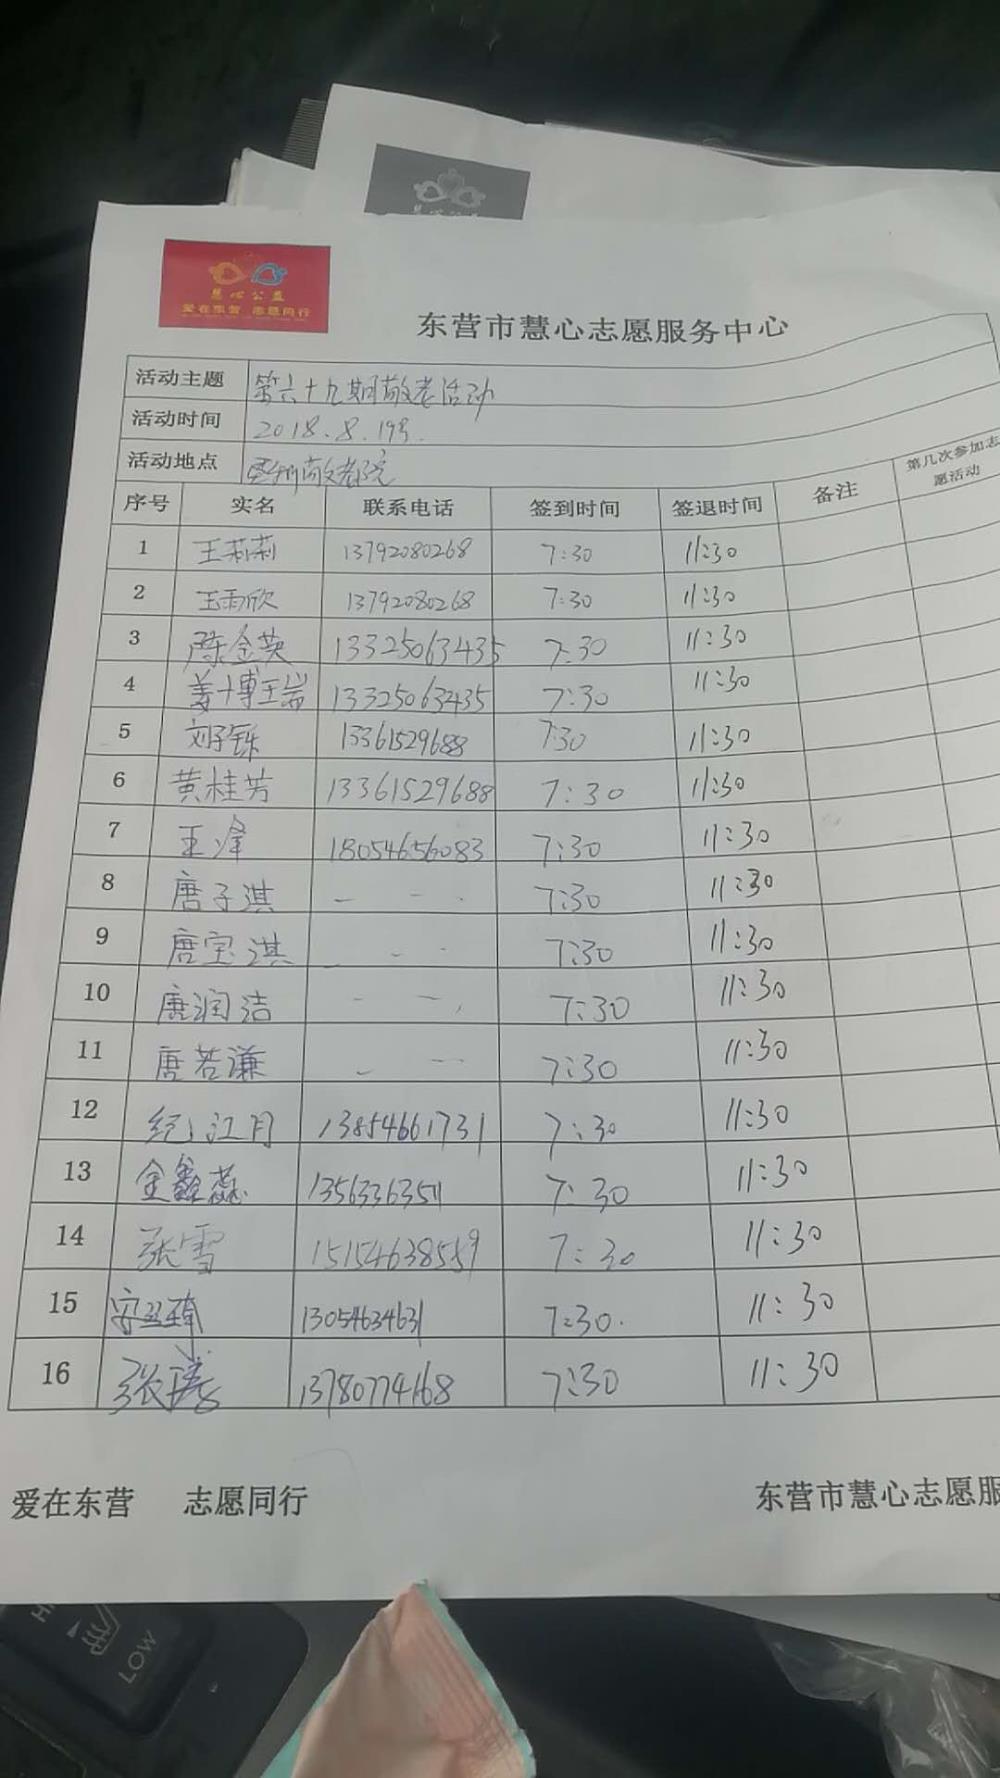 慧心公益
爱在东营 志愿同行
东营市慧心志愿服务中心
活动主题 第六十九期敬老活动
活动时间 2018.8.19号.
活动地点 敬老院
序号 实名 联系电话 签到时间 签退时间 备注 第几次参加志愿活动
1 王莉莉 13792080268 7:30 11:30
2 王雨欣 13792080268 7:30 11:30
3 陈金英 13325063435 7:30 11:30
4 姜博瑞 13325063435 7:30 11:30
5 刘子铄 13361529688 7:30 11:30
6 黄桂芳 13361529688 7:30 11:30
7 王峰 18054656083 7:30 11:30
8 唐子淇 — - - 7:30 11:30
9 唐宝淇 - - - 7:30 11:30
10 唐润洁 - — 7:30 11:30
11 唐若谦 - — 7:30 11:30
12 纪江月 13854661731 7:30 11:30
13 金鑫蕊 1356336351 7:30 11:30
14 张雪 15154638559 7:30 11:30
15 13054634631 7:30. 11:30
16 张 13780774168 7:30 11:30
爱在东营 志愿同行 东营市慧心志愿服
LOW